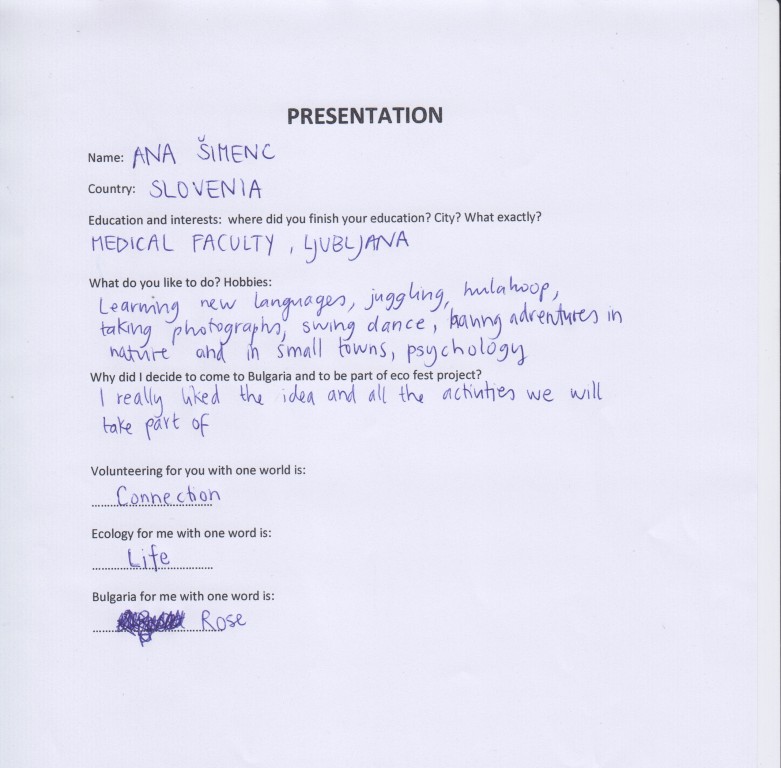 PRESENTATION
Name: ANA ŠIMENC
Country: SLOVENIA
Education and interests: where did you finish your education? City? What exactly?
MEDICAL FACULTY, LJUBLJANA
What do you like to do? Hobbies:
Learning new languages, juggling, hulahoop,
taking photographs, swing dance, having adventures in
nature and in small towns, psychology
Why did I decide to come to Bulgaria and to be part of eco fest project?
I really liked the idea and all the activities we will
take part of
Volunteering for you with one world is:
Connection
Ecology for me with one word is:
Life
Bulgaria for me with one word is:
Rose